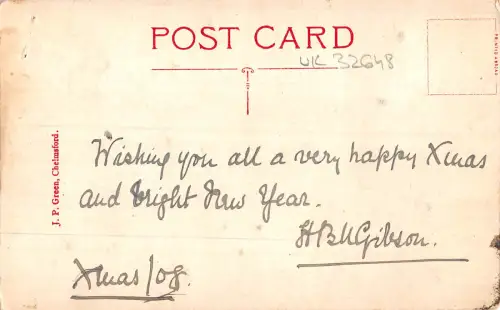 POST CARD
UK 32648
J. P. Green, Chelmsford.
Wishing you all a very happy Xmas
and bright New Year.
HBMGibson.
Xmas/08.